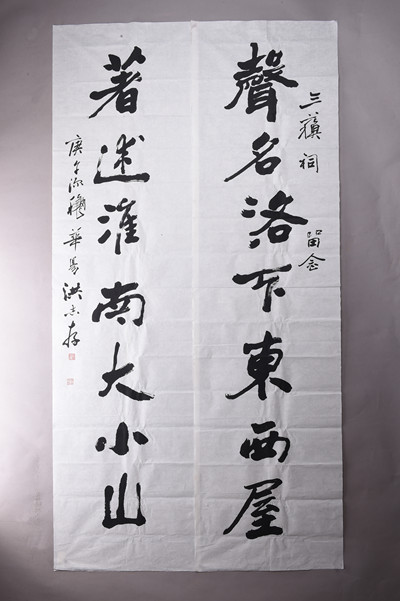 三蘇祠 留念
聲名洛下東西屋
著述淮南大小山
庚午深穐 華昜 洪志存